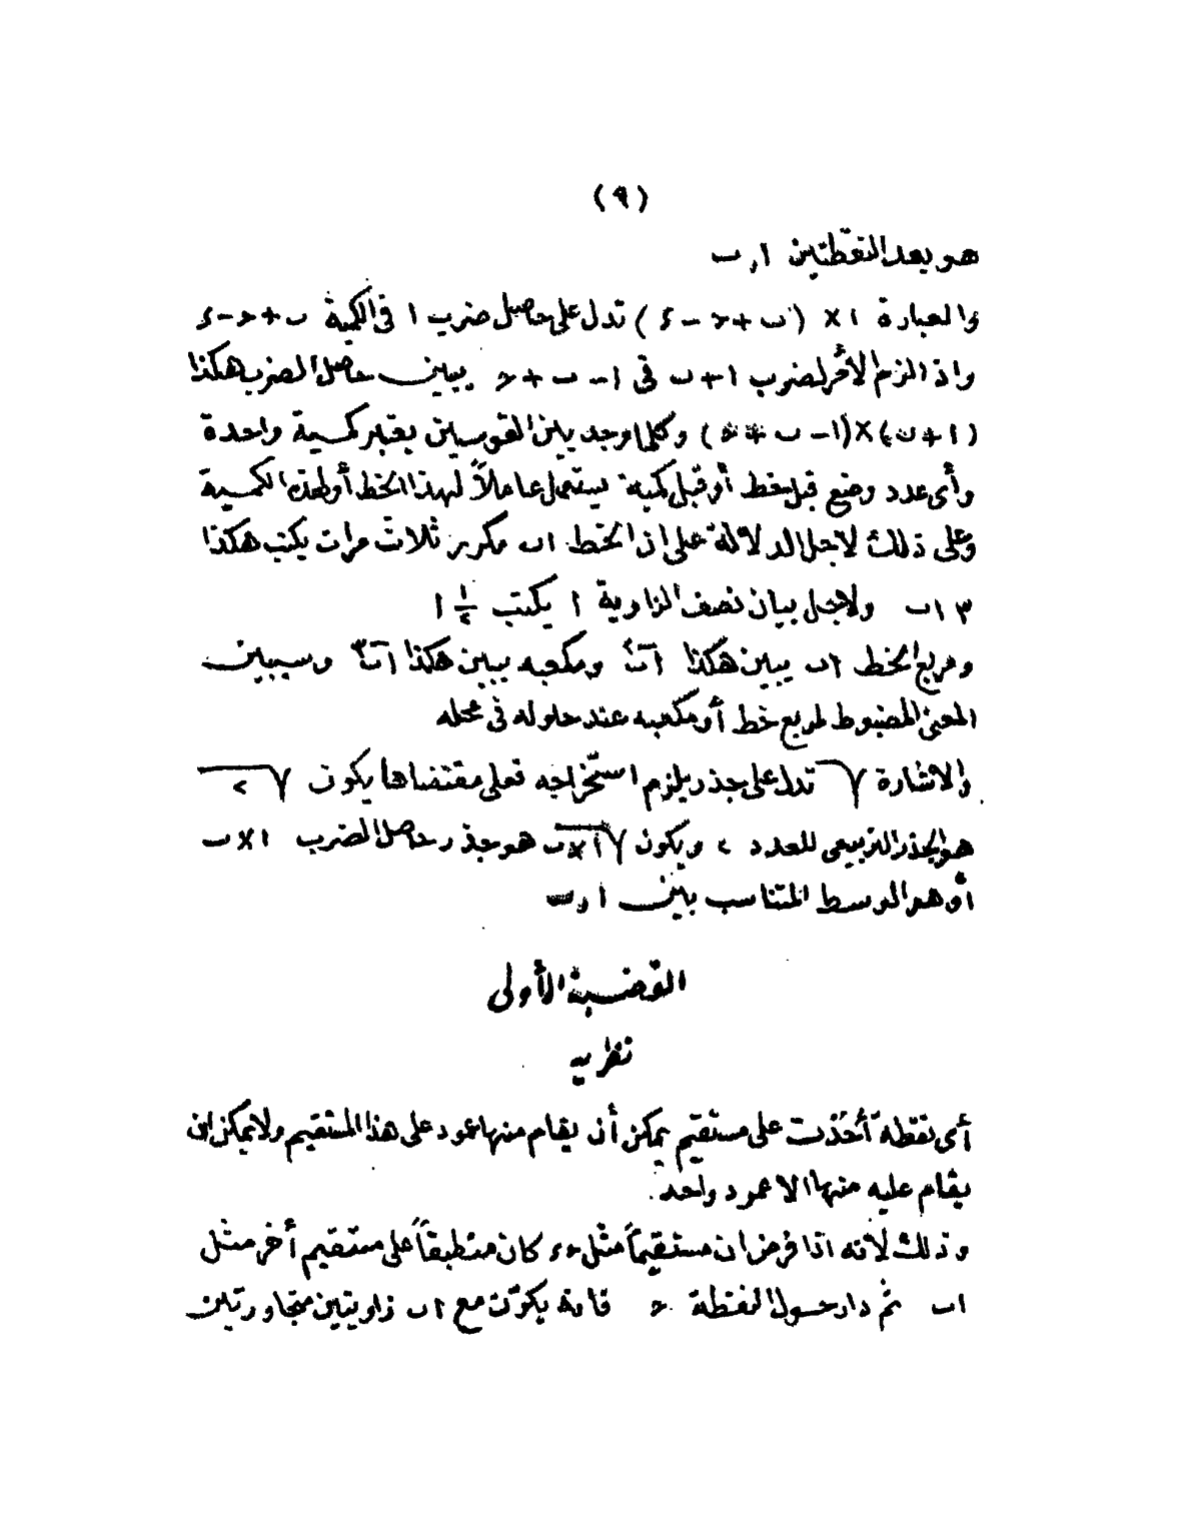 (٩)
هو بعد النقطتين ا و ب
والعبارة ا × (ب + ح - ء) تدل على حاصل ضرب ا فى الكمية ب + ح - ء
واذا لزم الأمر لضرب ا + ب فى ا - ب + ح يبين حاصل الضرب هكذا
(ا + ب) × (ا - ب + ح) وكلما وجد بين القوسين يعتبر كمية واحدة
وأى عدد وضع قبل خط أو قبل كمية يستعمل عاملاً لهذا الخط أو لهذه الكمية
وعلى ذلك لاجل الدلالة على ان الخط اب مكرر ثلاث مرات يكتب هكذا
٣ اب ولاجل بيان نصف الزاوية ا يكتب ١/٢ ا
ومربع الخط اب يبين هكذا اب٢ ومكعبه يبين هكذا اب٣ وسيبين
المعنى المضبوط لمربع خط أو مكعبه عند حلوله فى محله
والاشارة √ تدل على جذر يلزم استخراجه فعلى مقتضاها يكون √٢
هو الجذر التربيعى للعدد ٢ ويكون √ا×ب هو جذر حاصل الضرب ا × ب
أو هو الوسط المتناسب بين ا و ب
القضية الأولى
نظرية
أى نقطة أخذت على مستقيم يمكن أن يقام منها عمود على هذا المستقيم ولا يمكن ان
يقام عليه منها الا عمود واحد.
وذلك لأنه اذا فرض ان مستقيماً مثل حء كان منطبقاً على مستقيم أخر مثل
اب ثم دار حول النقطة ح فانه يكوّن مع اب زاويتين متجاورتين